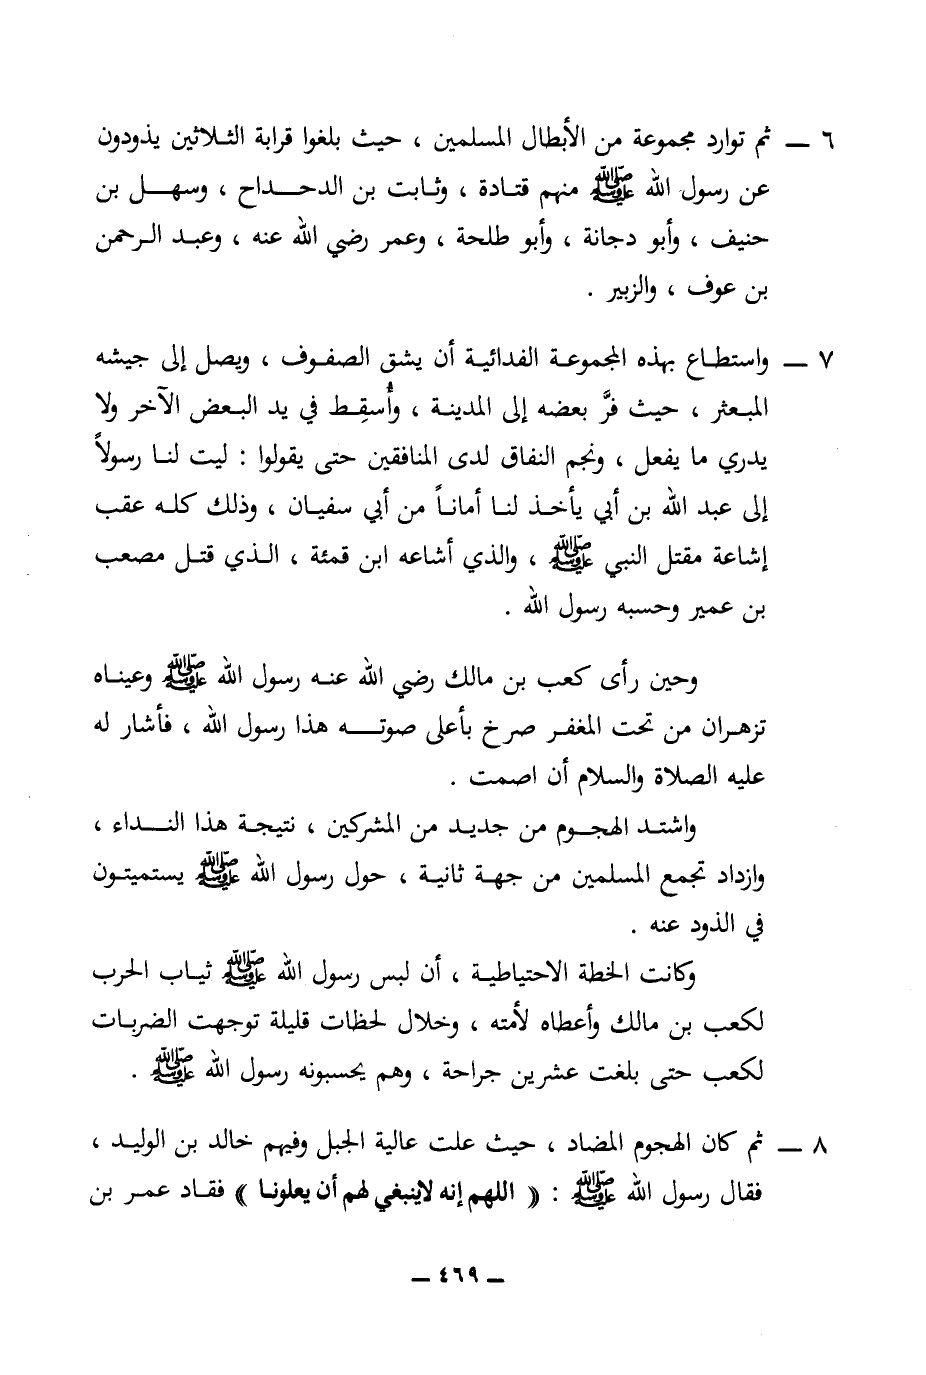 ٦ ــ ثم توارد مجموعة من الأبطال المسلمين ، حيث بلغوا قرابة الثلاثين يذودون
عن رسول الله ﷺ منهم قتادة ، وثابت بن الدحداح ، وسهل بن
حنيف ، وأبو دجانة ، وأبو طلحة ، وعمر رضي الله عنه ، وعبد الرحمن
بن عوف ، والزبير .
٧ ــ واستطاع بهذه المجموعة الفدائية أن يشق الصفوف ، ويصل إلى جيشه
المبعثر ، حيث فرَّ بعضه إلى المدينة ، وأُسقِط في يد البعض الآخر ولا
يدري ما يفعل ، ونجم النفاق لدى المنافقين حتى يقولوا : ليت لنا رسولاً
إلى عبد الله بن أبي يأخذ لنا أماناً من أبي سفيان ، وذلك كله عقب
إشاعة مقتل النبي ﷺ ، والذي أشاعه ابن قمئة ، الذي قتل مصعب
بن عمير وحسبه رسول الله .
وحين رأى كعب بن مالك رضي الله عنه رسول الله ﷺ وعيناه
تزهران من تحت المغفر صرخ بأعلى صوته هذا رسول الله ، فأشار له
عليه الصلاة والسلام أن اصمت .
واشتد الهجوم من جديد من المشركين ، نتيجة هذا النداء ،
وازداد تجمع المسلمين من جهة ثانية ، حول رسول الله ﷺ يستميتون
في الذود عنه .
وكانت الخطة الاحتياطية ، أن لبس رسول الله ﷺ ثياب الحرب
لكعب بن مالك وأعطاه لأمته ، وخلال لحظات قليلة توجهت الضربات
لكعب حتى بلغت عشرين جراحة ، وهم يحسبونه رسول الله ﷺ .
٨ ــ ثم كان الهجوم المضاد ، حيث علت عالية الجبل وفيهم خالد بن الوليد ،
فقال رسول الله ﷺ : (( اللهم إنه لاينبغي لهم أن يعلونا )) فقاد عمر بن
ــ ٤٦٩ ــ